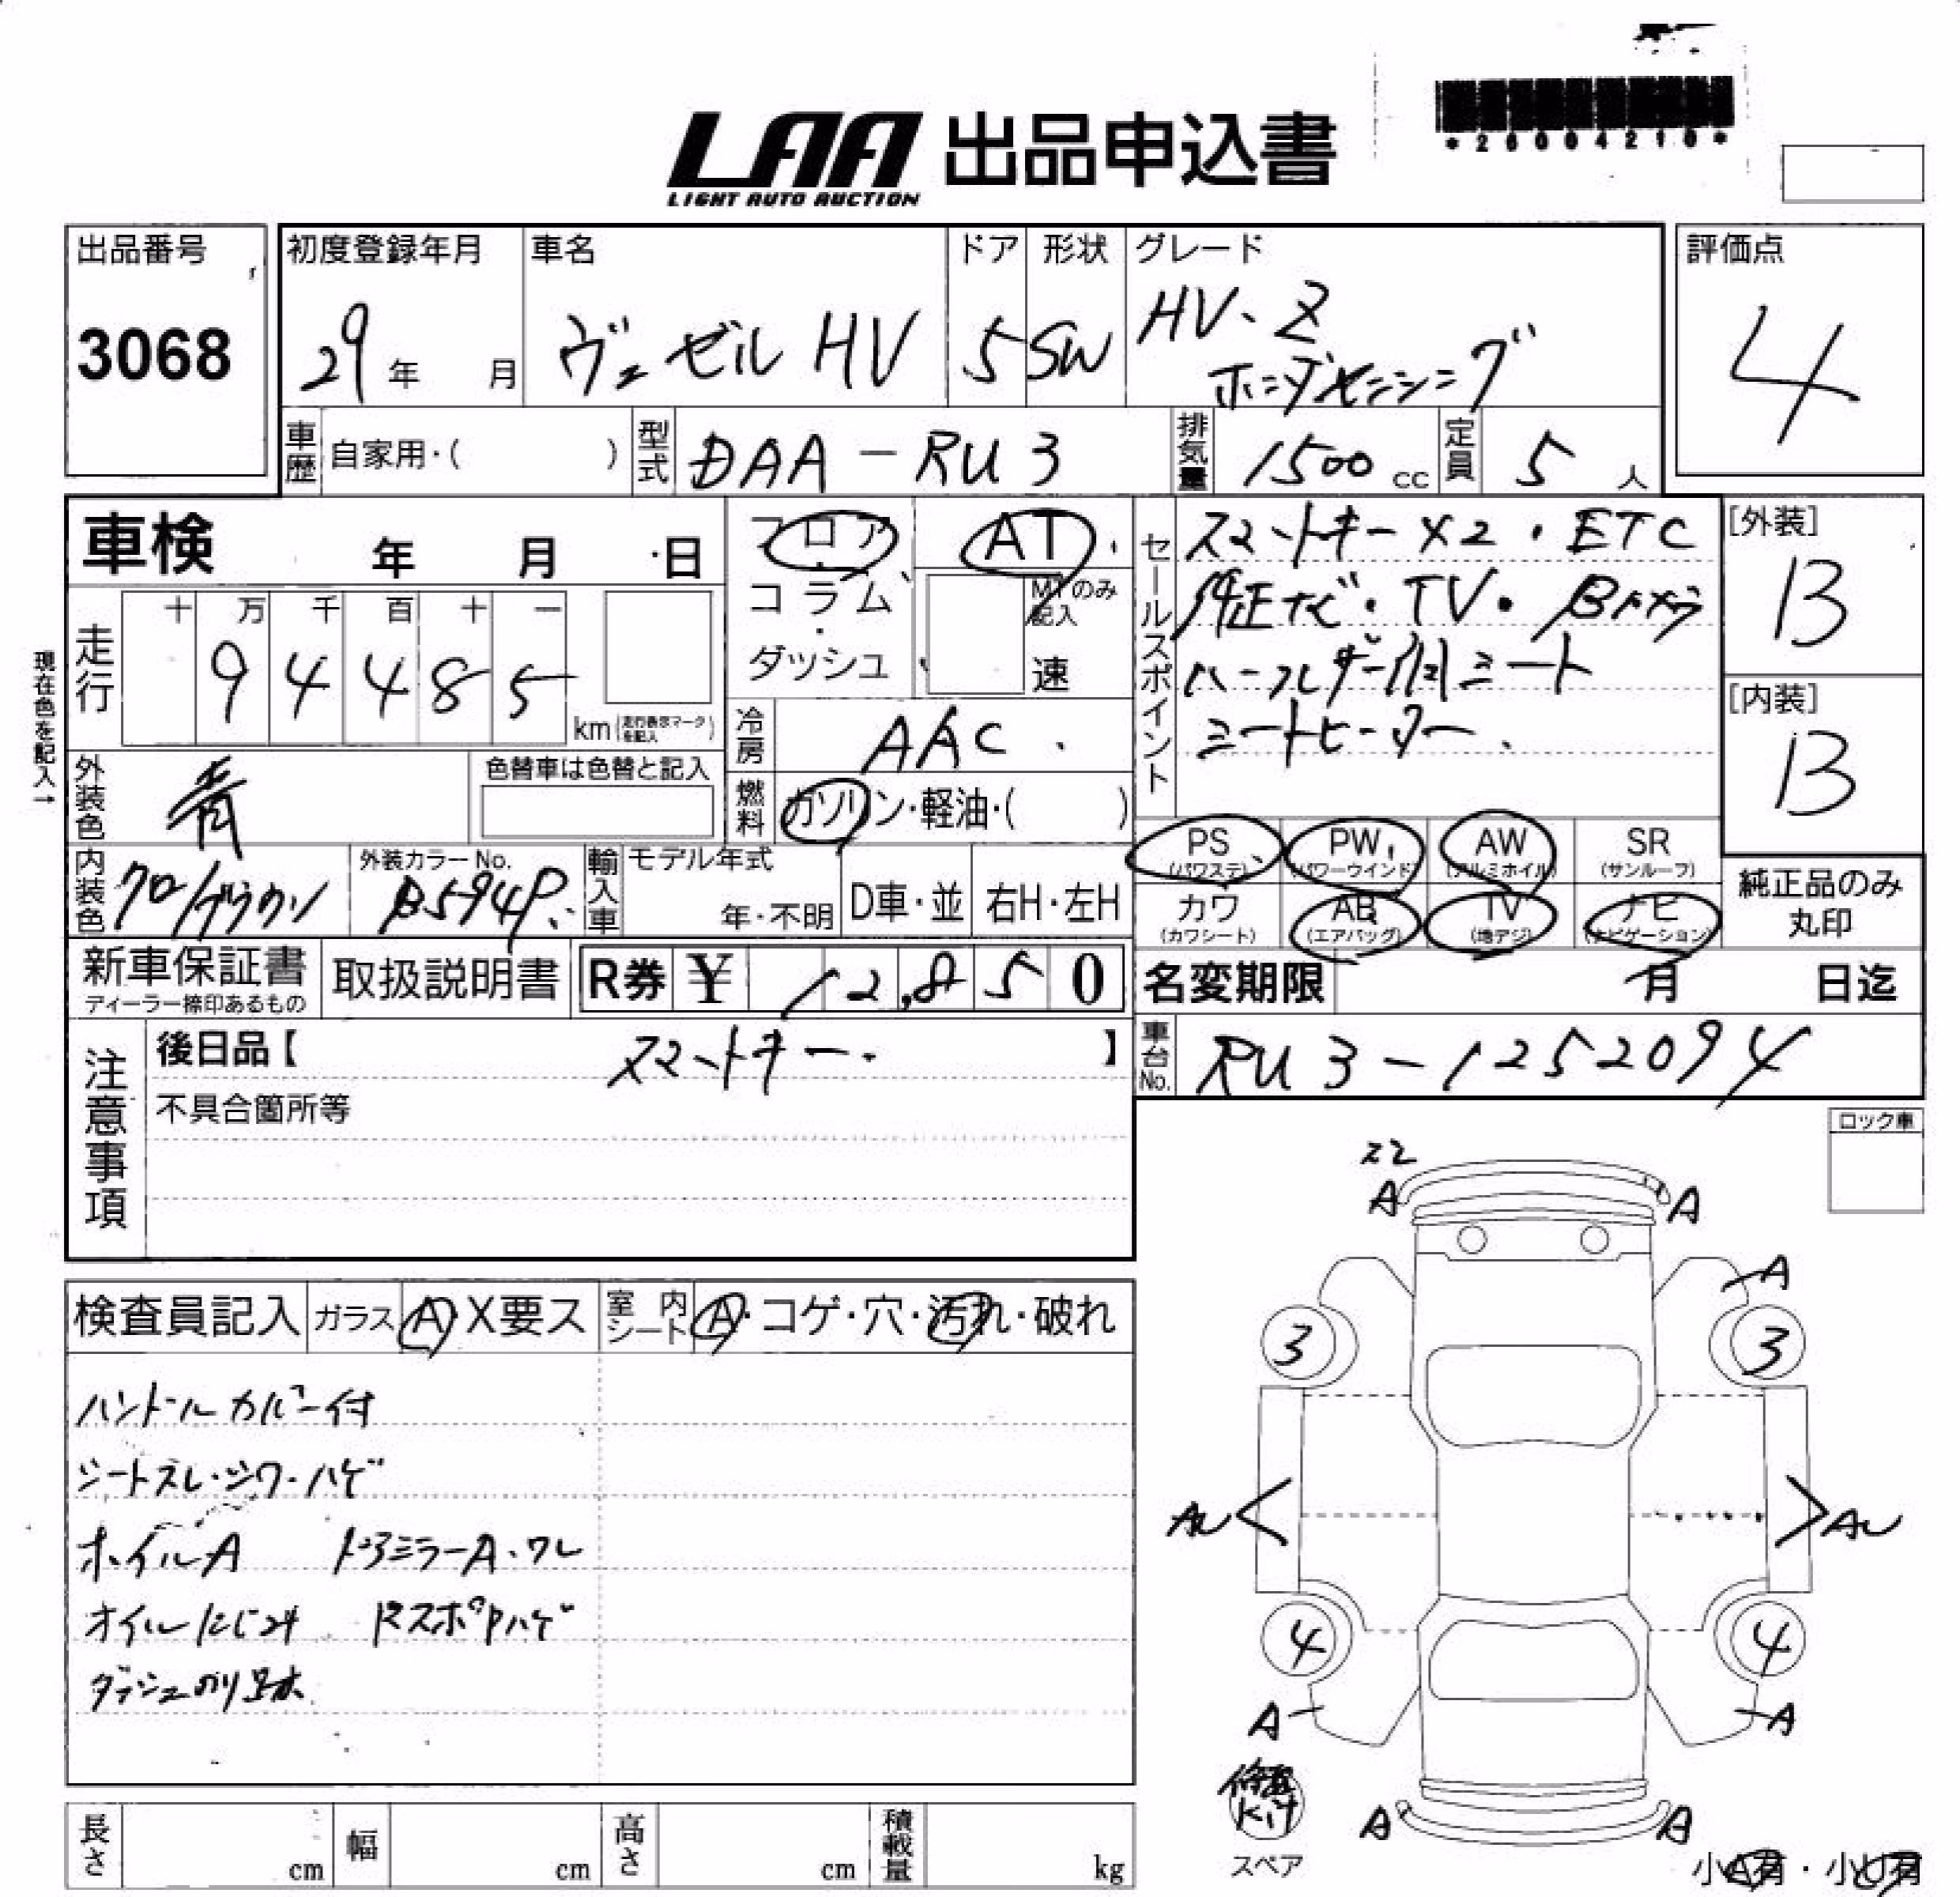 LAA 出品申込書
LIGHT AUTO AUCTION
*26004210*
出品番号
3068
初度登録年月
29年 月
車名
ヴェゼル HV
ドア
5
形状
SW
グレード
HV・Z
ホンダセンシング
評価点
4
車歴 自家用・( )
型式 DAA-RU3
排気量 1500cc
定員 5人
車検 年 月 日
フロア・コラム・ダッシュ
AT
MTのみ記入
速
セールスポイント
スマートキー×2・ETC
純正ナビ・TV・Bカメラ
ハーフレザー シート
シートヒーター
[外装]
B
[内装]
B
現在色を記入→
走行
十 万 千 百 十 一
9 4 4 8 5
km (走行表示マークを記入)
冷房 AAC
外装色 青
色替車は色替と記入
燃料 ガソリン・軽油・( )
PS (パワステ)
PW (パワーウインド)
AW (アルミホイル)
SR (サンルーフ)
カワ (カワシート)
AB (エアバッグ)
TV (地デジ)
ナビ (ナビゲーション)
純正品のみ丸印
内装色 クロ/ブラウン
外装カラーNo. B594P
輸入車
モデル年式
年・不明
D車・並
右H・左H
新車保証書
ディーラー捺印あるもの
取扱説明書
R券 ¥ 12,850
名変期限 月 日迄
注意事項
後日品【 スマートキー 】
車台No. RU3-1252094
不具合箇所等
ロック車
検査員記入
ガラス A・X要ス
室内シート A・コゲ・穴・汚れ・破れ
ハンドルカバー付
シートスレ・シワ・ハゲ
ホイルA ドアミラーA・ワレ
オイルにじみ ドスポPハゲ
ダッシュのり跡
スリ
A A
A
3 3
AU AU
4 4
A A
修理Kit
スペア
A A
小A有・小U有
長さ cm
幅 cm
高さ cm
積載量 kg